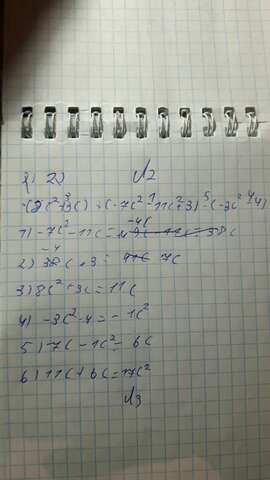 2)
√2
-(8c²+3c)+(-7c²-11c²+3)-(-3c²-4)
1) -7c²-11c=-4c
2) -4c+3= 7c
3) 8c²+3c=11c
4) -3c²-4=-1c²
5) 7c-1c²=6c
6) 11c+6c=17c²
√3